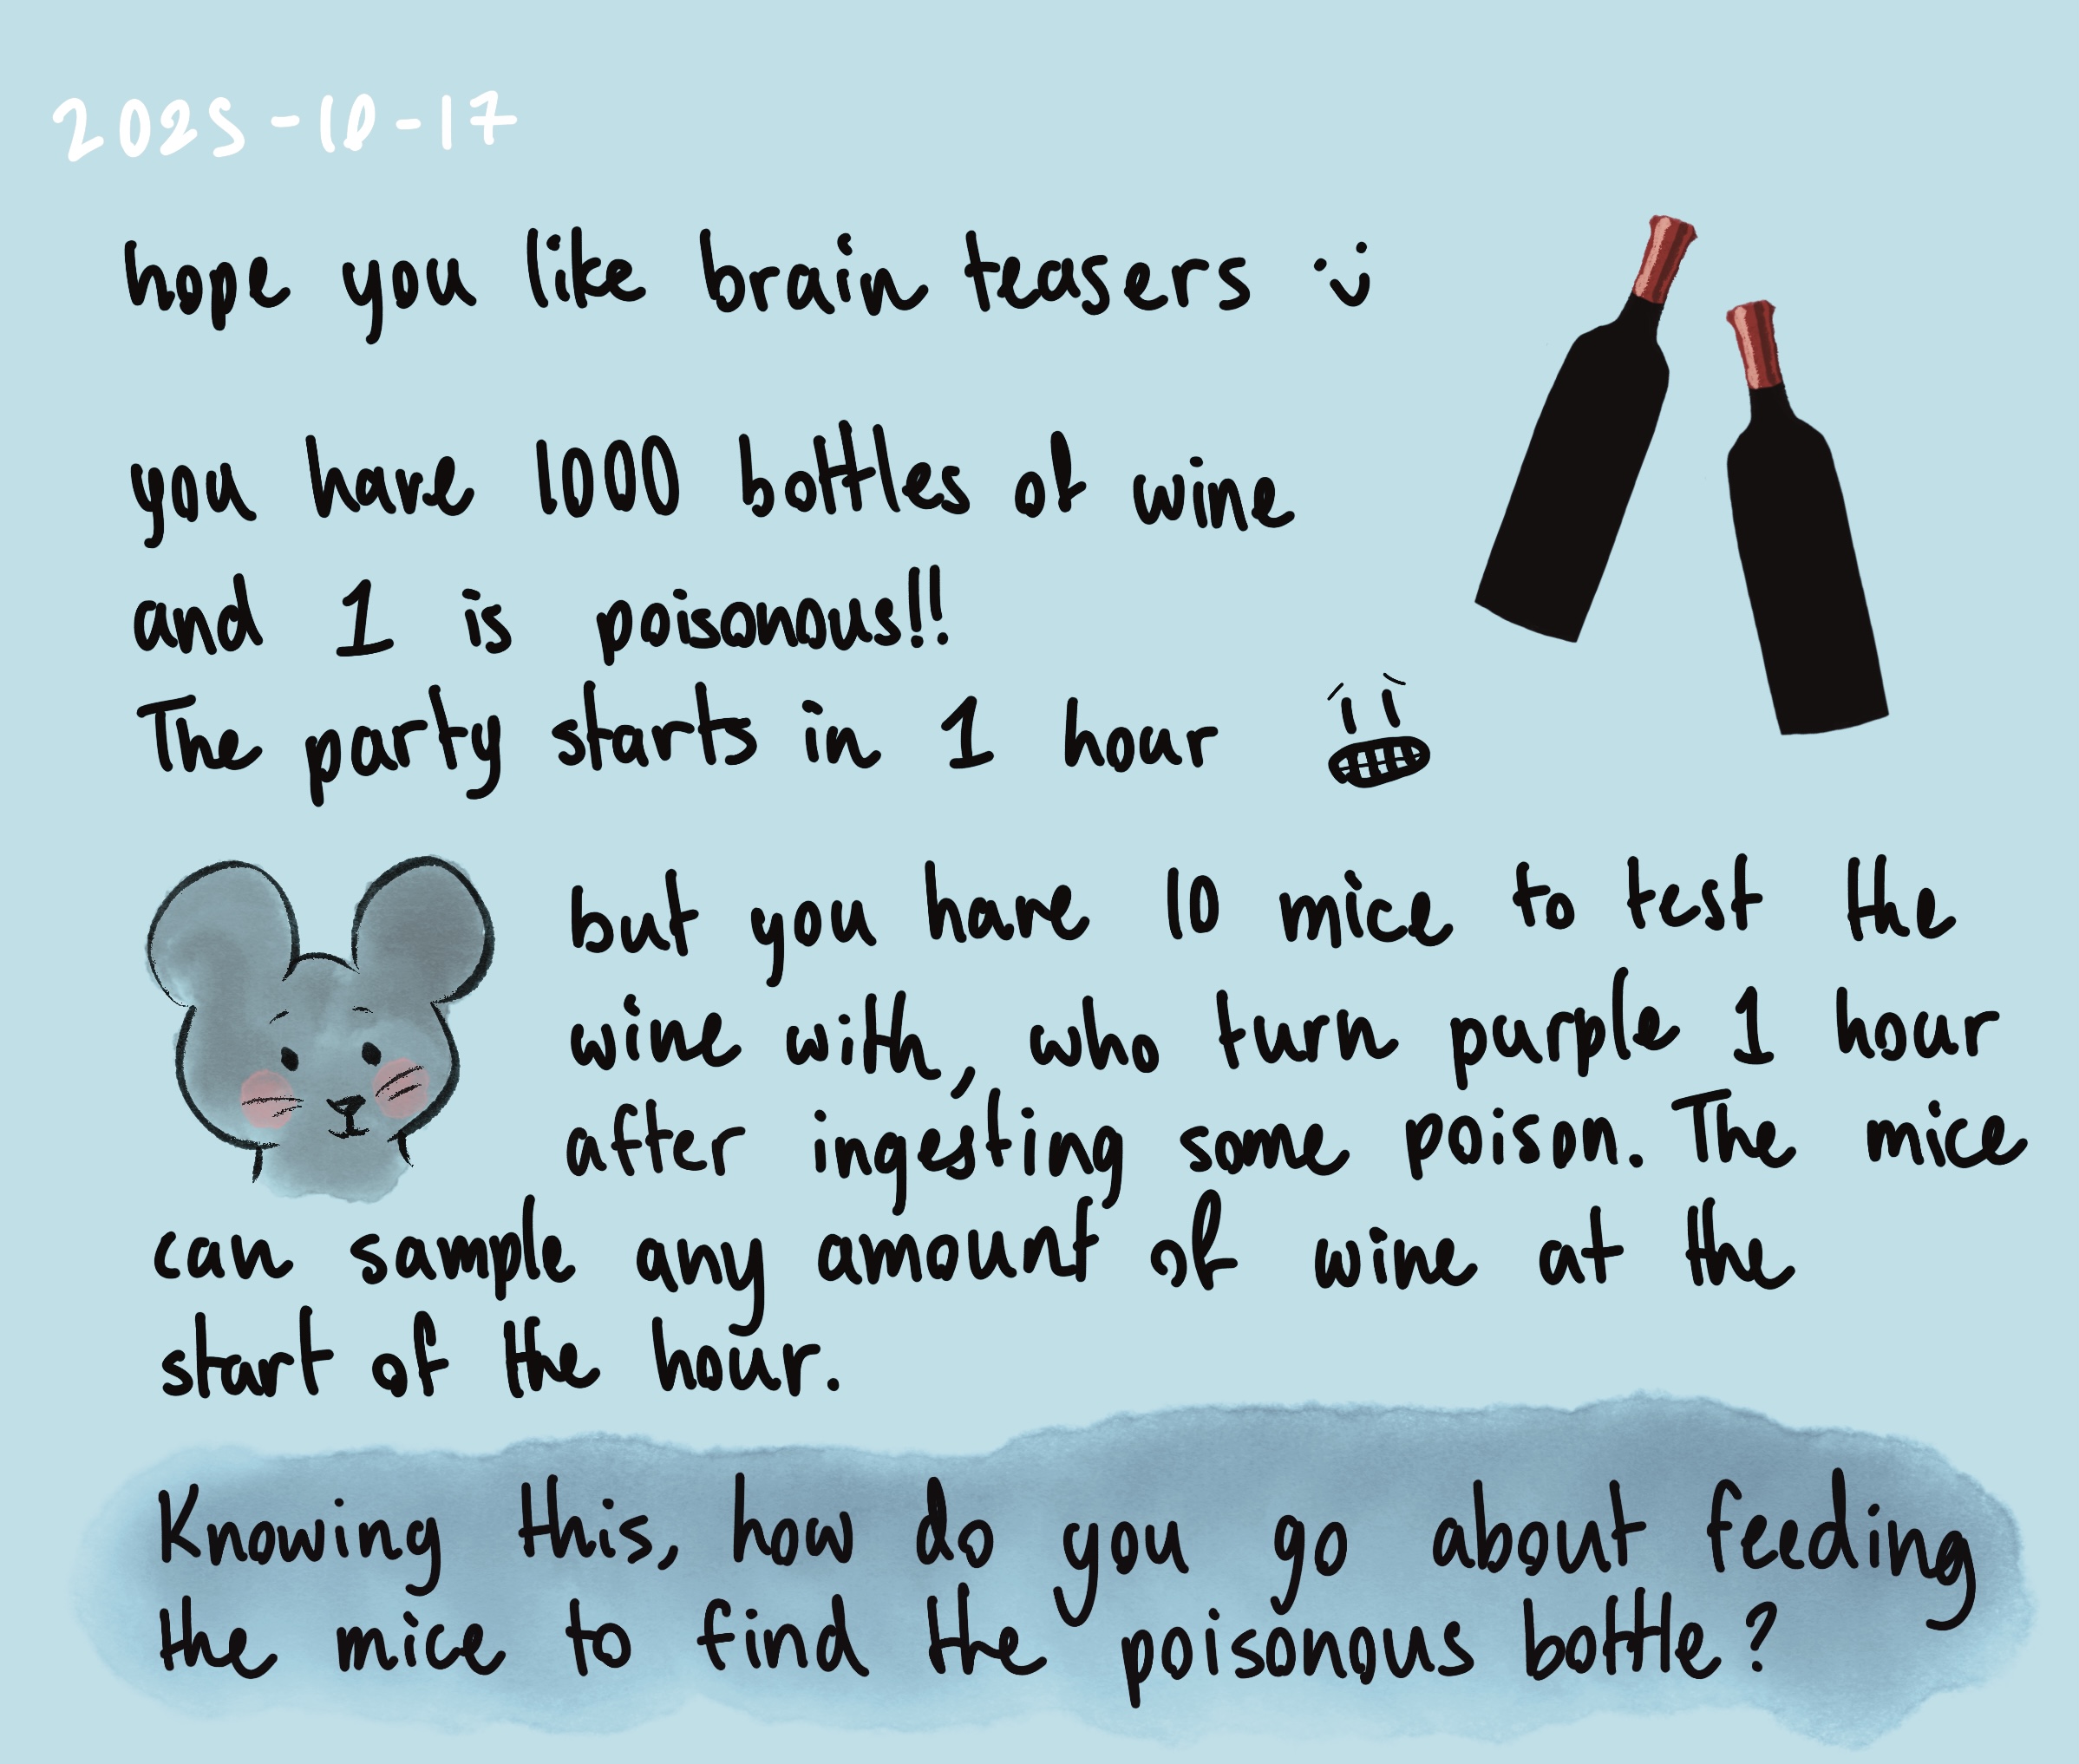 2025-10-17
hope you like brain teasers :)
you have 1000 bottles of wine
and 1 is poisonous!!
The party starts in 1 hour
but you have 10 mice to test the
wine with, who turn purple 1 hour
after ingesting some poison. The mice
can sample any amount of wine at the
start of the hour.
Knowing this, how do you go about feeding
the mice to find the poisonous bottle?